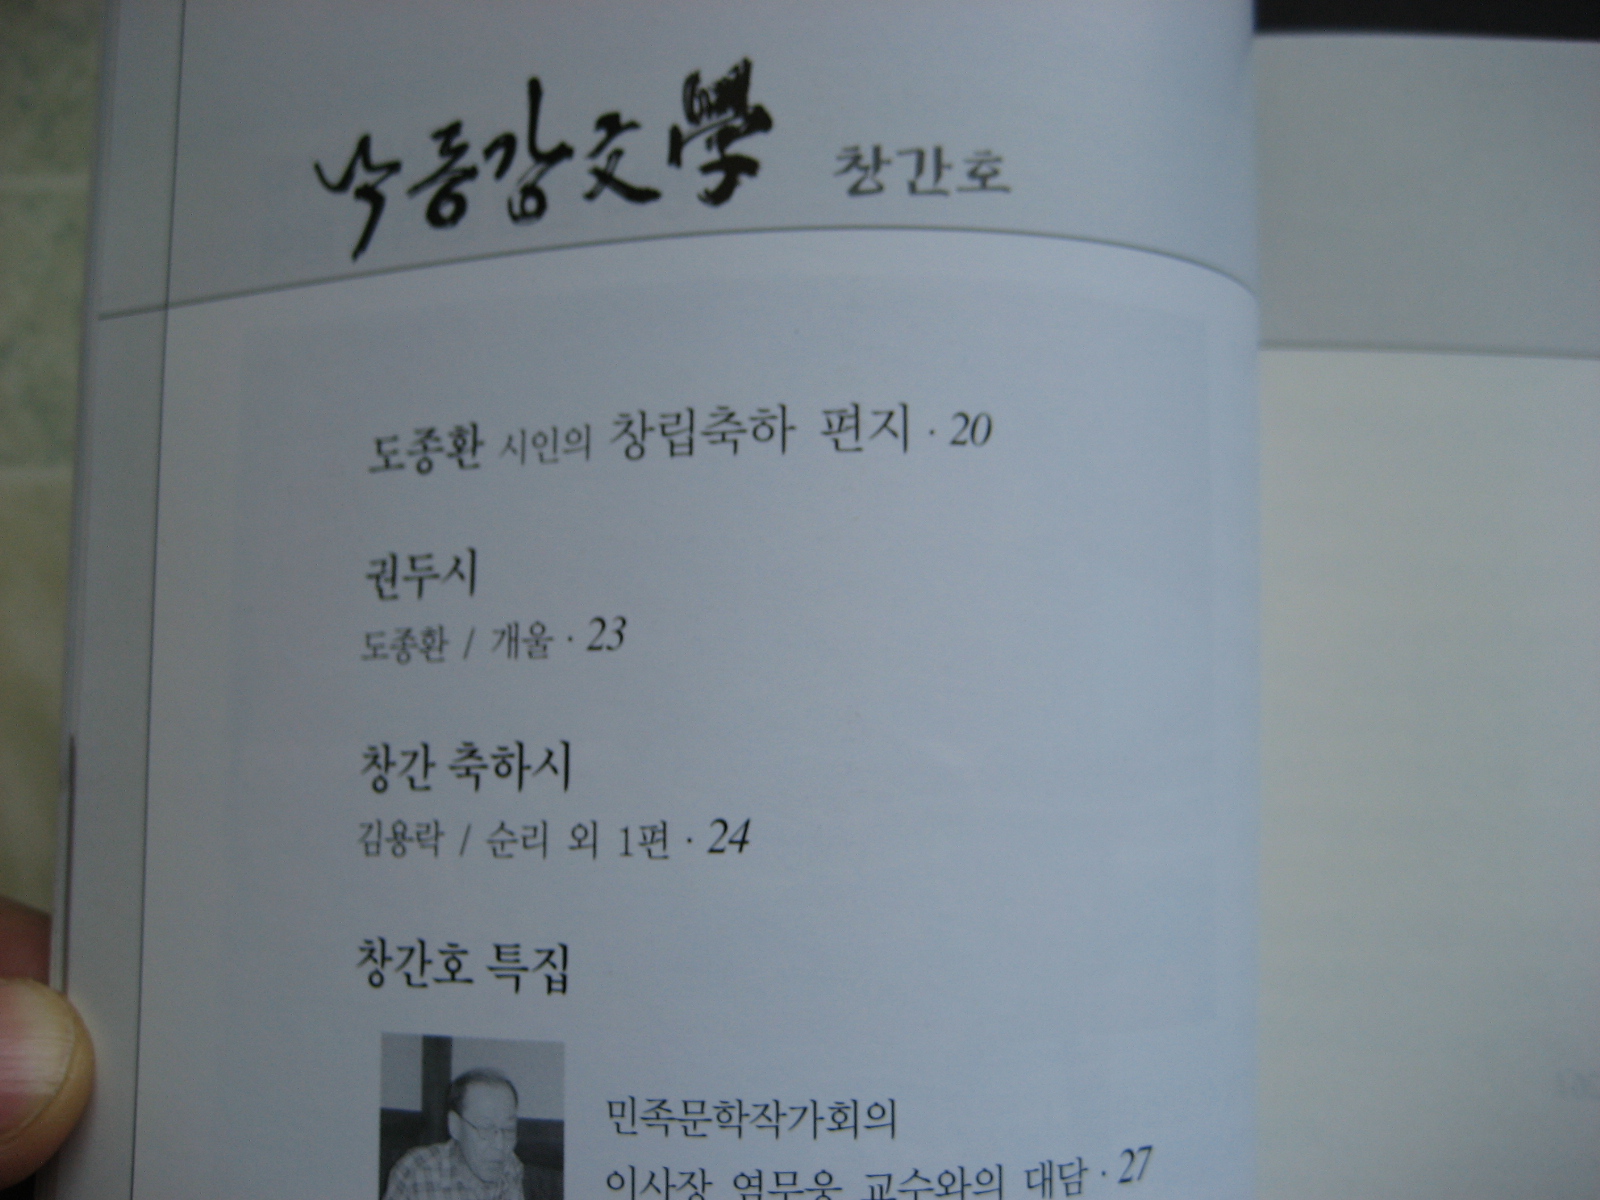 낙동강文學 창간호
도종환 시인의 창립축하 편지 · 20
권두시
도종환 / 개울 · 23
창간 축하시
김용락 / 순리 외 1편 · 24
창간호 특집
민족문학작가회의
이사장 염무웅 교수와의 대담 · 27